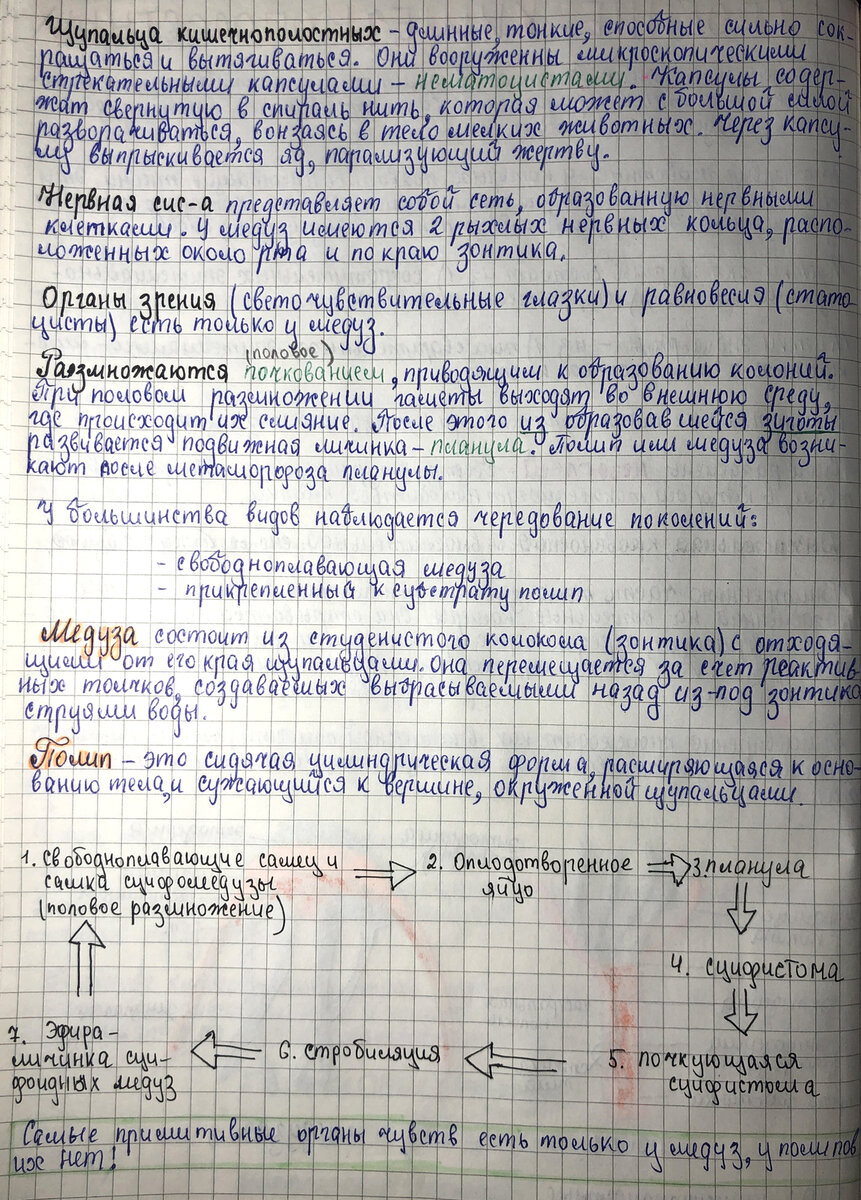 Щупальца кишечнополостных – длинные, тонкие, способные сильно сок-
ращаться и вытягиваться. Они вооруженны микроскопическими
стрекательными капсулами – нематоцистами. Капсулы содер-
жат свернутую в спираль нить, которая может с большой силой
разворачиваться, вонзаясь в тело мелких животных. Через капсу-
лу выпрыскивается яд, парализующий жертву.
Нервная сис-а представляет собой сеть, образованную нервными
клетками. У медуз имеются 2 рыхлых нервных кольца, распо-
ложенных около рта и по краю зонтика.
Органы зрения (светочувствительные глазки) и равновесия (стато
цисты) есть только у медуз.
(половое)
Размножаются почкованием, приводящим к образованию колоний.
При половом размножении гаметы выходят во внешнюю среду,
где происходит их слияние. После этого из образовавшейся зиготы
развивается подвижная личинка – планула. Полип или медуза возни-
кают после метаморфоза планулы.
У большинства видов наблюдается чередование поколений:
- свободноплавающая медуза
- прикрепленный к субстрату полип
Медуза состоит из студенистого колокола (зонтика) с отходя-
щими от его края щупальцами. Она перемещается за счет реактив
ных толчков, создаваемых выбрасываемыми назад из-под зонтика
струями воды.
Полип – это сидячая цилиндрическая форма, расширяющаяся к осно-
ванию тела, и сужающийся к вершине, окруженной щупальцами.
1. Свободноплавающие самец и
самка сцифомедузы
(половое размножение)
2. Оплодотворенное
яйцо
3. планула
4. сцифистома
5. почкующаяся
сцифистома
6. стробиляция
7. Эфира –
личинка сци-
фоидных медуз
Самые примитивные органы чувств есть только у медуз, у полипов
их нет!